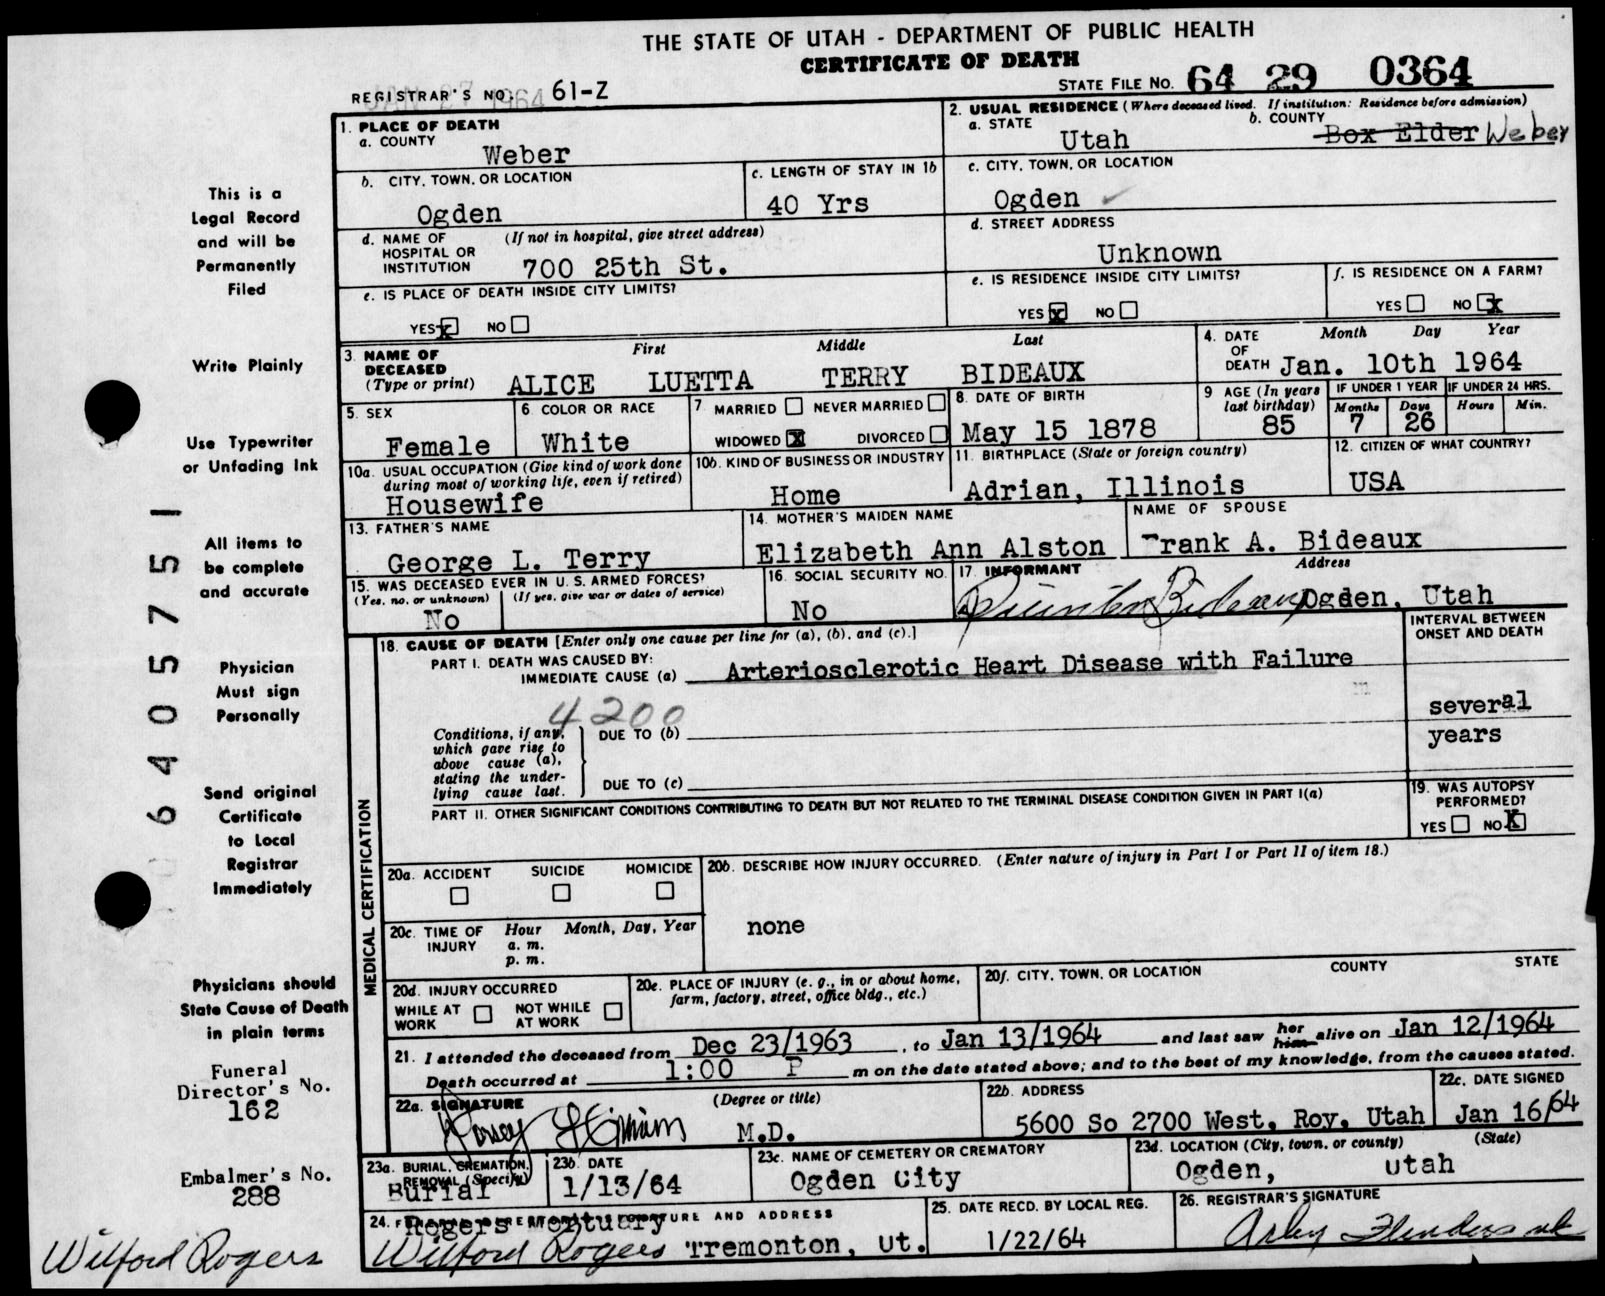 THE STATE OF UTAH - DEPARTMENT OF PUBLIC HEALTH
CERTIFICATE OF DEATH
STATE FILE NO. 64 29 0364
REGISTRAR'S NO. 61-Z
JAN 27 1964
1. PLACE OF DEATH
a. COUNTY
Weber
2. USUAL RESIDENCE (Where deceased lived. If institution: Residence before admission)
a. STATE
Utah
b. COUNTY
Box Elder Weber
b. CITY, TOWN, OR LOCATION
Ogden
c. LENGTH OF STAY IN 1b
40 Yrs
c. CITY, TOWN, OR LOCATION
Ogden
d. NAME OF HOSPITAL OR INSTITUTION
(If not in hospital, give street address)
700 25th St.
d. STREET ADDRESS
Unknown
e. IS PLACE OF DEATH INSIDE CITY LIMITS?
YES X NO
e. IS RESIDENCE INSIDE CITY LIMITS?
YES X NO
f. IS RESIDENCE ON A FARM?
YES NO X
3. NAME OF DECEASED
(Type or print)
First Middle Last
ALICE LUETTA TERRY BIDEAUX
4. DATE OF DEATH
Month Day Year
Jan. 10th 1964
5. SEX
Female
6 COLOR OR RACE
White
7 MARRIED NEVER MARRIED
WIDOWED X DIVORCED
8. DATE OF BIRTH
May 15 1878
9 AGE (In years last birthday)
85
IF UNDER 1 YEAR
Months Days
7 26
IF UNDER 24 HRS.
Hours Min.
10a. USUAL OCCUPATION (Give kind of work done during most of working life, even if retired)
Housewife
10b. KIND OF BUSINESS OR INDUSTRY
Home
11. BIRTHPLACE (State or foreign country)
Adrian, Illinois
12. CITIZEN OF WHAT COUNTRY?
USA
13. FATHER'S NAME
George L. Terry
14. MOTHER'S MAIDEN NAME
Elizabeth Ann Alston
NAME OF SPOUSE
Frank A. Bideaux
15. WAS DECEASED EVER IN U. S. ARMED FORCES?
(Yes, no, or unknown) (If yes, give war or dates of service)
No
16. SOCIAL SECURITY NO.
No
17. INFORMANT Address
Quinton Bideaux Ogden, Utah
MEDICAL CERTIFICATION
18. CAUSE OF DEATH [Enter only one cause per line for (a), (b), and (c).]
PART I. DEATH WAS CAUSED BY:
IMMEDIATE CAUSE (a) Arteriosclerotic Heart Disease with Failure
4200
Conditions, if any, which gave rise to above cause (a), stating the underlying cause last.
DUE TO (b)
DUE TO (c)
INTERVAL BETWEEN ONSET AND DEATH
several
years
PART II. OTHER SIGNIFICANT CONDITIONS CONTRIBUTING TO DEATH BUT NOT RELATED TO THE TERMINAL DISEASE CONDITION GIVEN IN PART I(a)
19. WAS AUTOPSY PERFORMED?
YES NO X
20a. ACCIDENT SUICIDE HOMICIDE
20b. DESCRIBE HOW INJURY OCCURRED. (Enter nature of injury in Part I or Part II of item 18.)
none
20c. TIME OF INJURY
Hour Month, Day, Year
a. m.
p. m.
20d. INJURY OCCURRED
WHILE AT WORK NOT WHILE AT WORK
20e. PLACE OF INJURY (e. g., in or about home, farm, factory, street, office bldg., etc.)
20f. CITY, TOWN, OR LOCATION COUNTY STATE
21. I attended the deceased from Dec 23/1963, to Jan 13/1964 and last saw her him alive on Jan 12/1964
Death occurred at 1:00 P m on the date stated above; and to the best of my knowledge, from the causes stated.
22a. SIGNATURE (Degree or title)
M.D.
22b. ADDRESS
5600 So 2700 West, Roy, Utah
22c. DATE SIGNED
Jan 16/64
23a. BURIAL, CREMATION, REMOVAL (Specify)
Burial
23b. DATE
1/13/64
23c. NAME OF CEMETERY OR CREMATORY
Ogden City
23d. LOCATION (City, town, or county) (State)
Ogden, Utah
24. FUNERAL DIRECTOR'S SIGNATURE AND ADDRESS
Rogers Mortuary
Wilford Rogers Tremonton, Ut.
25. DATE RECD. BY LOCAL REG.
1/22/64
26. REGISTRAR'S SIGNATURE
This is a
Legal Record
and will be
Permanently
Filed
Write Plainly
Use Typewriter
or Unfading Ink
All items to
be complete
and accurate
Physician
Must sign
Personally
Send original
Certificate
to Local
Registrar
Immediately
Physicians should
State Cause of Death
in plain terms
Funeral
Director's No.
162
Embalmer's No.
288
Wilford Rogers
64057551